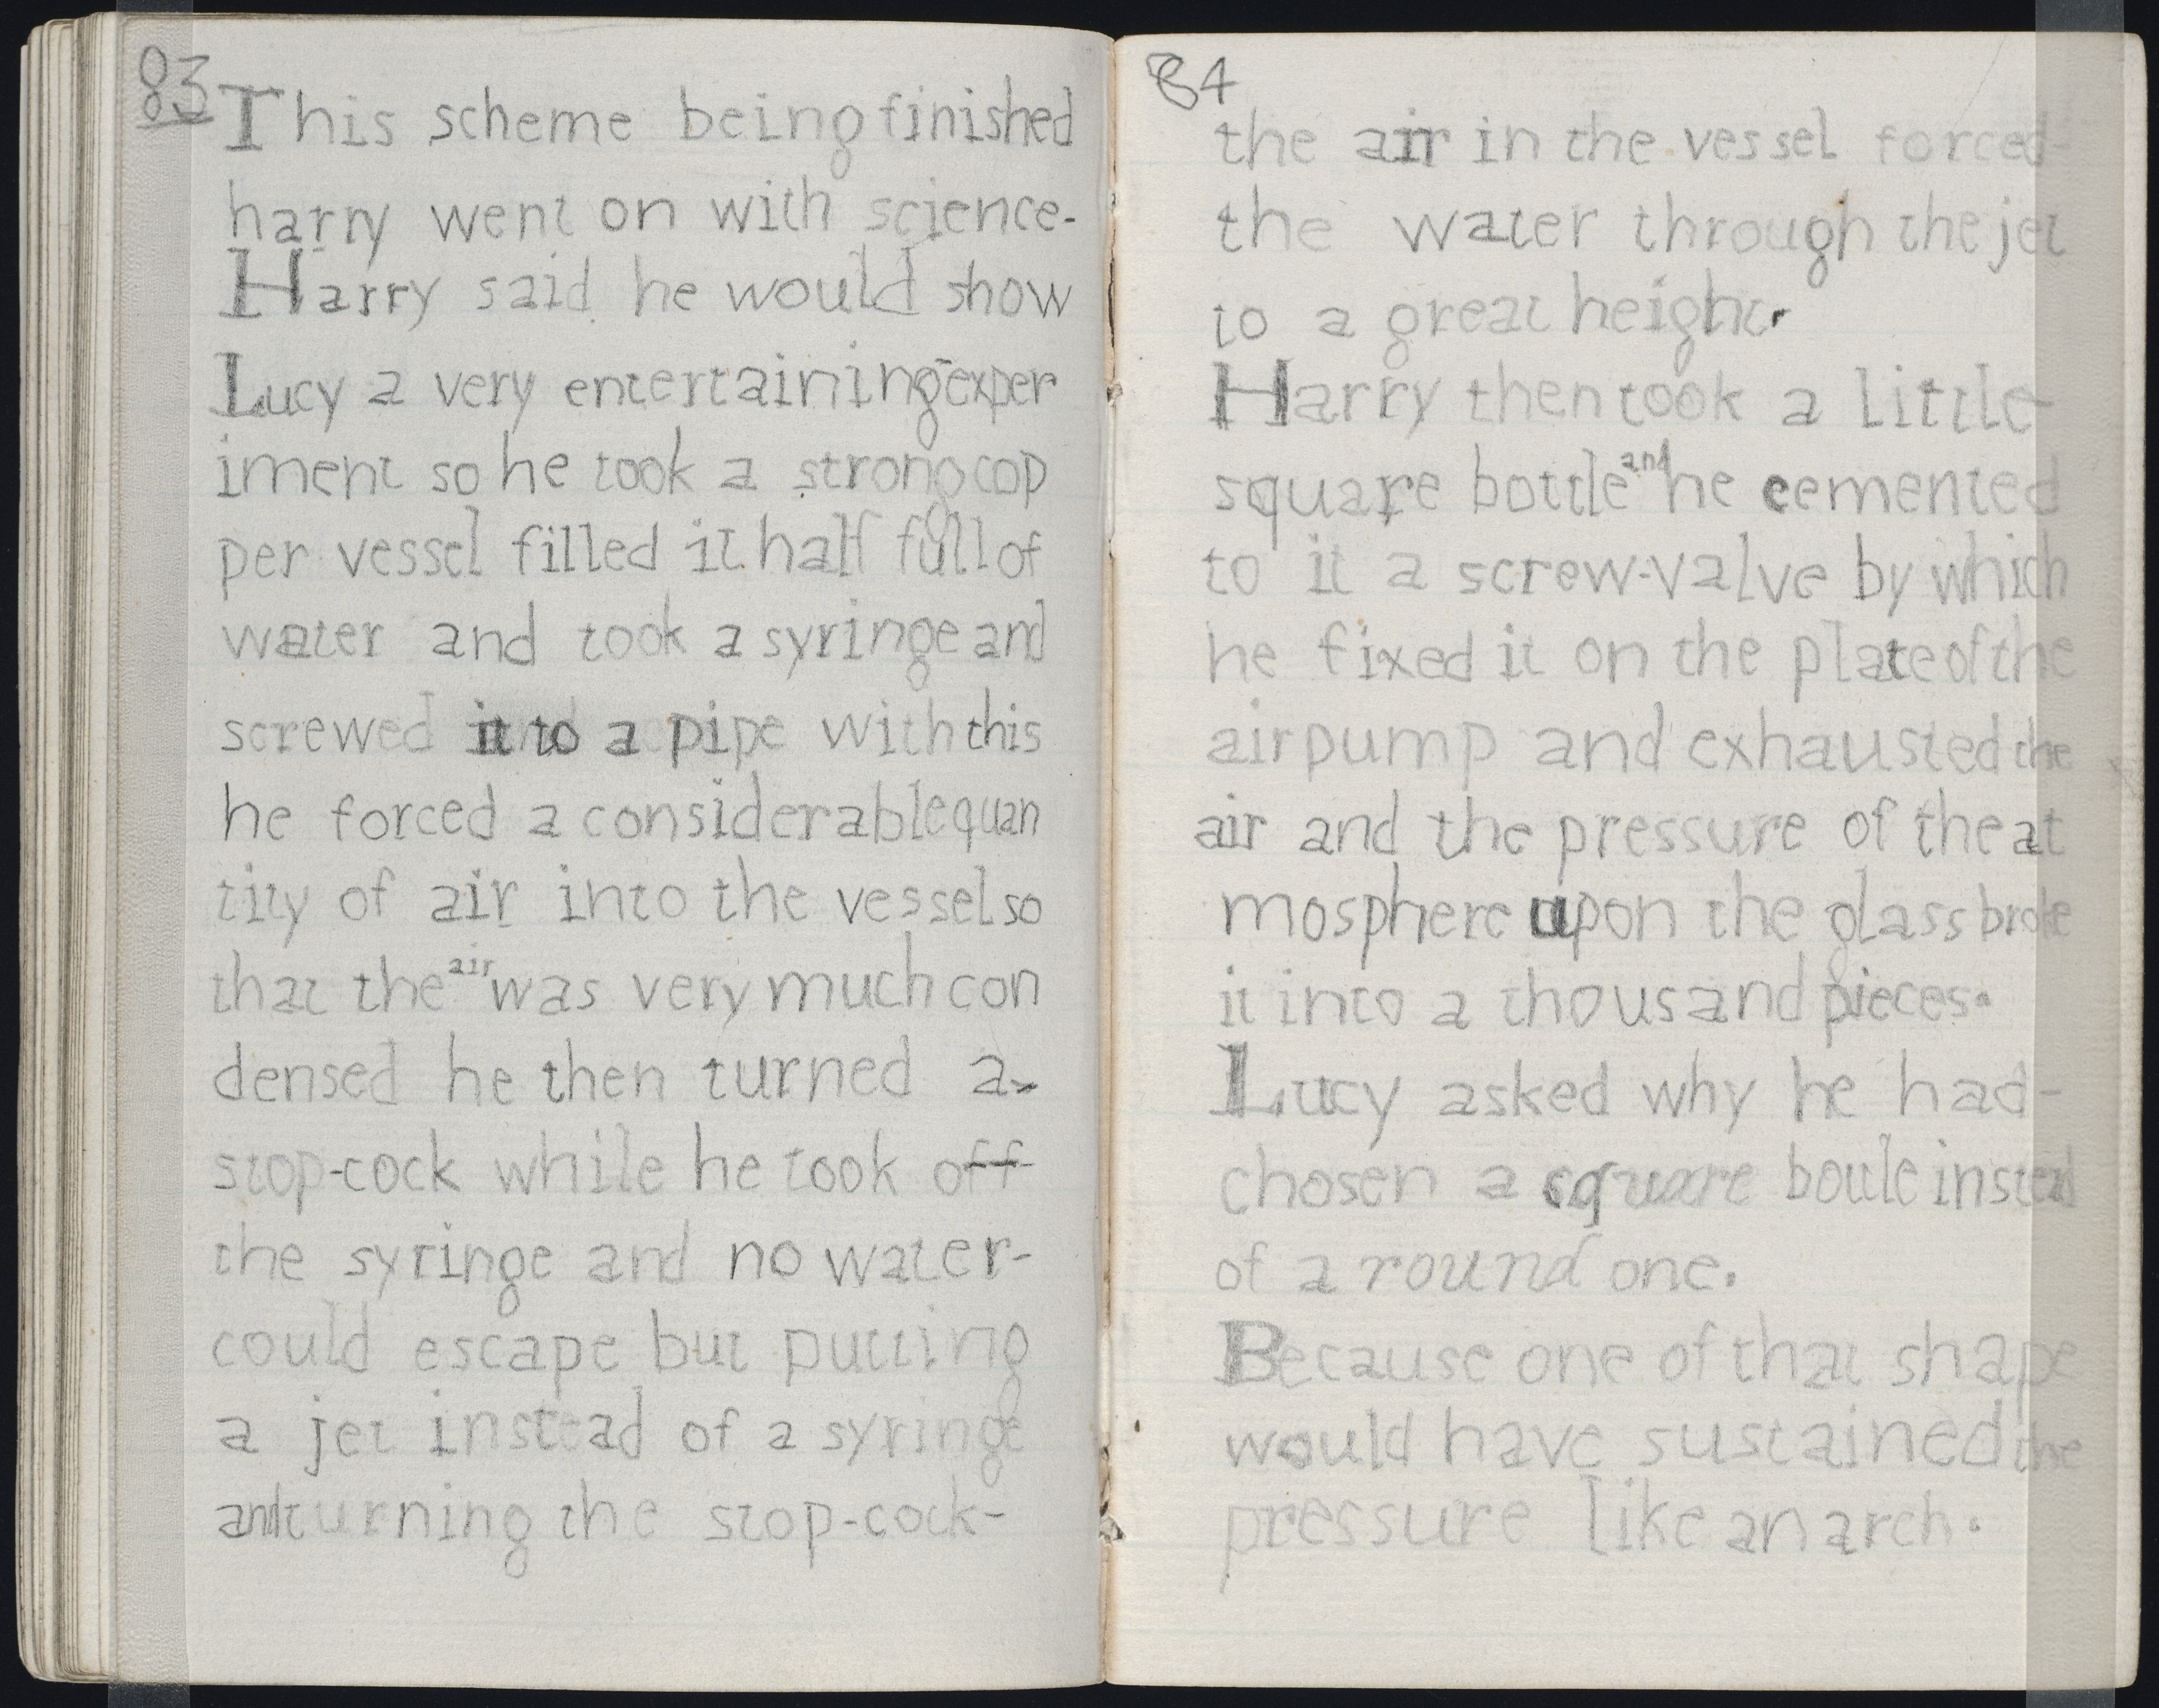 83
This scheme being finished
harry went on with science-
Harry said he would show
Lucy a very entertaining exper
iment so he took a strong cop
per vessel filled it half full of
water and took a syringe and
screwed it to a pipe with this
he forced a considerable quan
tity of air into the vessel so
that the air was very much con
densed he then turned a-
stop-cock while he took off
the syringe and no water-
could escape but putting
a jet instead of a syringe
and turning the stop-cock-
84
the air in the vessel forced-
the water through the jet
to a great height.
Harry then took a little
square bottle and he cemented
to it a screw-valve by which
he fixed it on the plate of the
air pump and exhausted the
air and the pressure of the at
mosphere upon the glass broke
it into a thousand pieces.
Lucy asked why he had-
chosen a square bottle instead
of a round one.
Because one of that shape
would have sustained the
pressure like an arch.